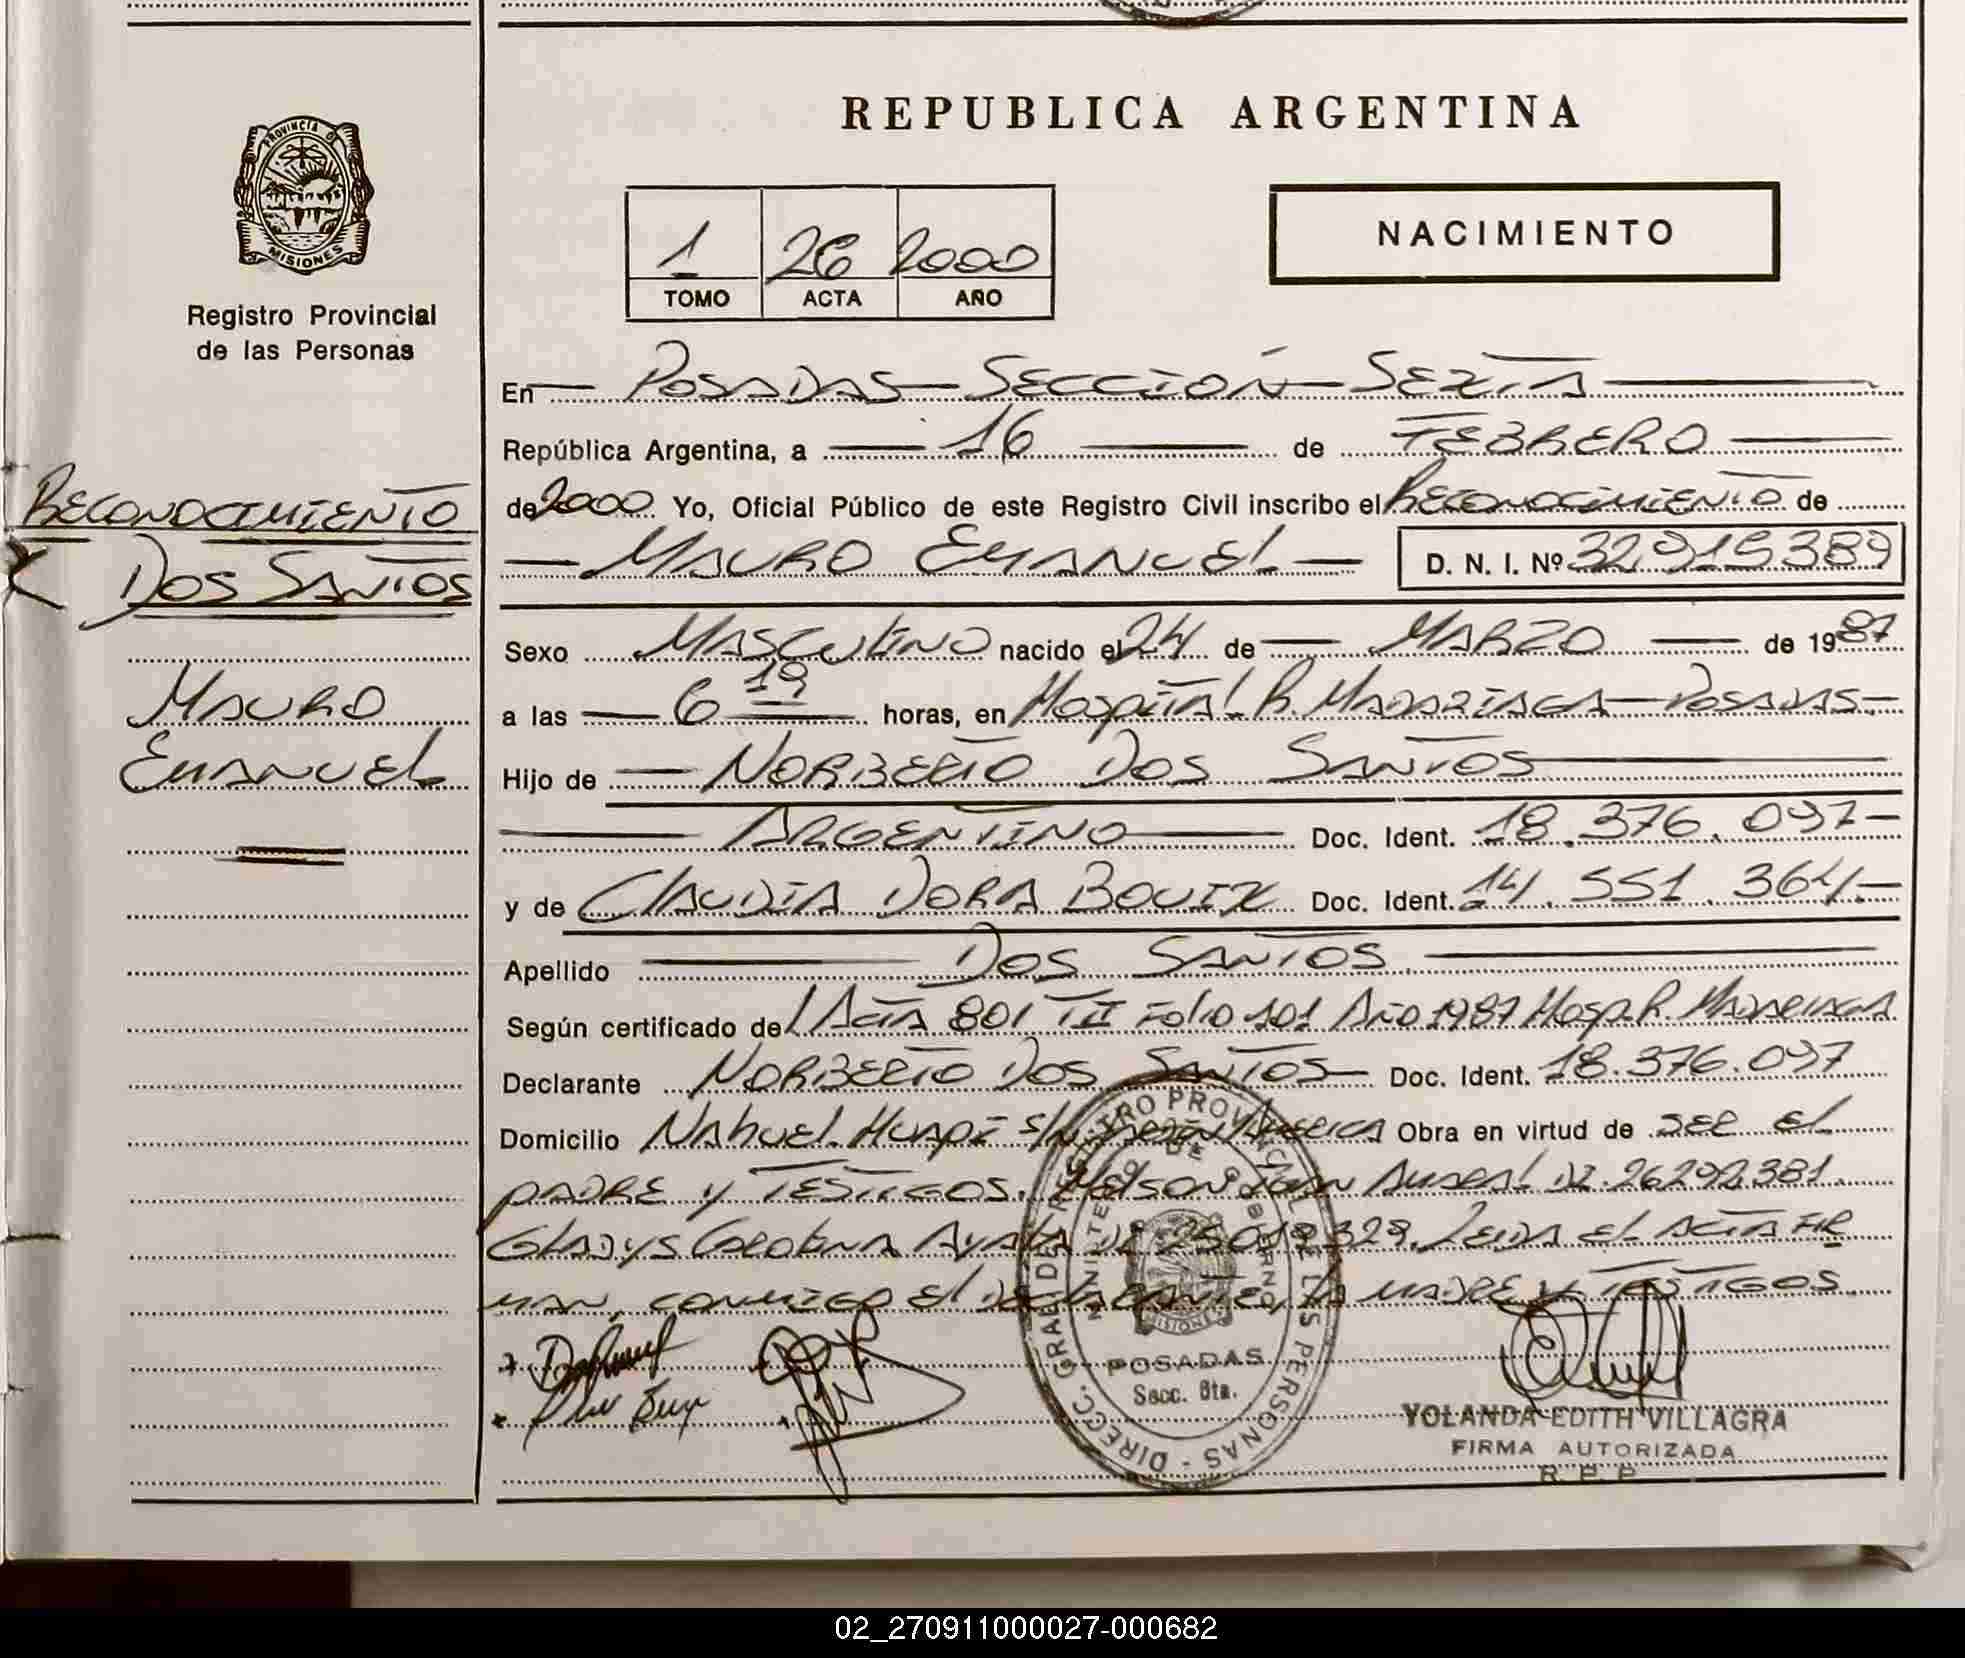 REPUBLICA ARGENTINA
PROVINCIA DE
MISIONES
Registro Provincial
de las Personas
1 26 2000
TOMO ACTA AÑO
NACIMIENTO
En POSADAS SECCIÓN SEXTA
República Argentina, a 16 de FEBRERO
de 2000 Yo, Oficial Público de este Registro Civil inscribo el RECONOCIMIENTO de
MAURO EMANUEL D. N. I. Nº 32.915389
RECONOCIMIENTO
DOS SANTOS
MAURO
EMANUEL
Sexo MASCULINO nacido el 24 de MARZO de 1987
a las 6 19 horas, en HOSPITAL R. MADARIAGA - POSADAS -
Hijo de NORBERTO DOS SANTOS
ARGENTINO Doc. Ident. 18.376.097-
y de CLAUDIA DORA BOUIX Doc. Ident. 14.551.364-
Apellido DOS SANTOS
Según certificado del ACTA 801 TII Folio 101 AÑO 1987 Hosp. R. MADARIAGA
Declarante NORBERTO DOS SANTOS Doc. Ident. 18.376.097
Domicilio NAHUEL HUAPI S/N Obra en virtud de SER EL
PADRE Y TESTIGOS. NELSON DI. 26.292.381.
GLADYS AYALA DI LEIDA EL ACTA FIR
MAN, CONMIGO EL DECLARANTE, LA MADRE Y TESTIGOS
DIRECC. GRAL DEL REGISTRO PROVINCIAL DE LAS PERSONAS
MINISTERIO DE GOBIERNO
MISIONES
POSADAS
Secc. 6ta.
YOLANDA EDITH VILLAGRA
FIRMA AUTORIZADA
R. P. P.
02_270911000027-000682